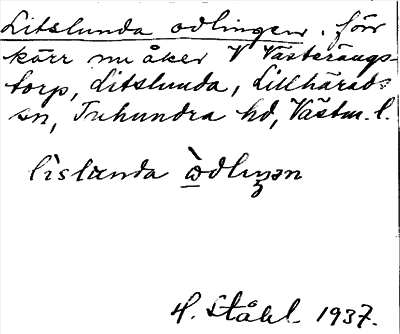 Litslunda odlingen, förr
kärr nu åker V Västerängs-
torp, Litslunda, Lillhärads
sn, Tuhundra hd, Västm. l.
lìslunda ò̱dlıŋən
H. Ståhl 1937.